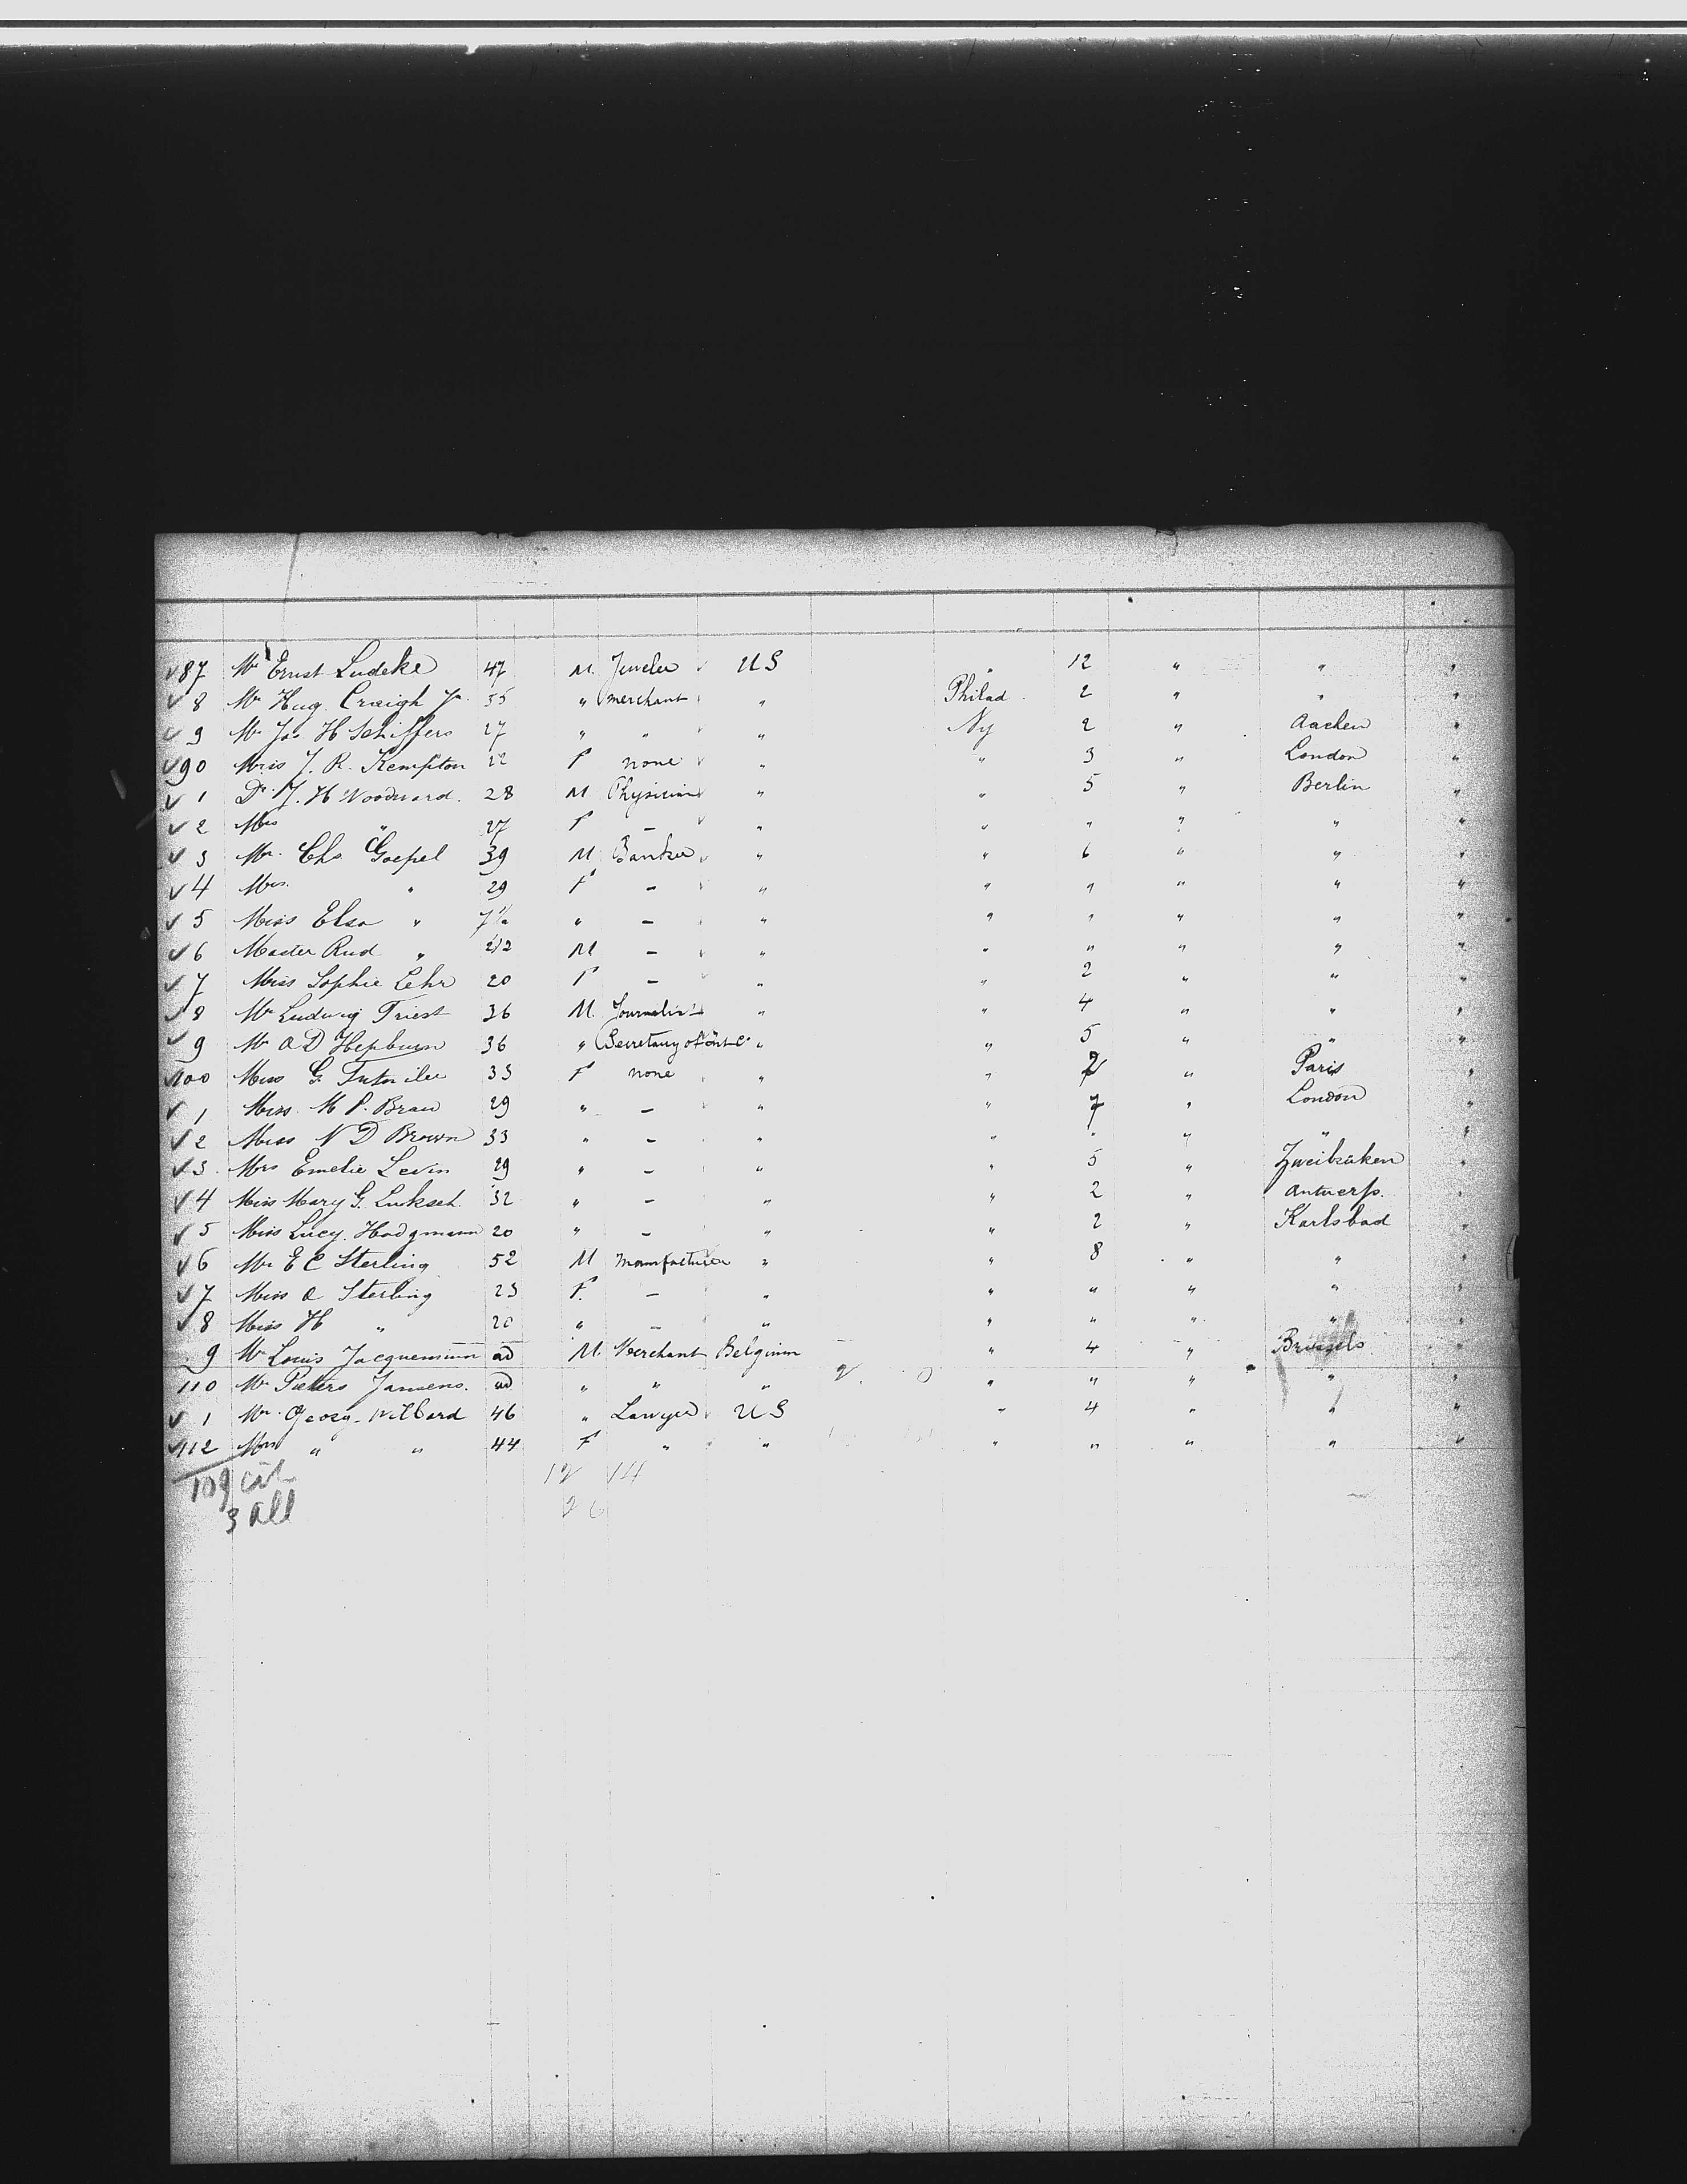 87 Mr Ernst Ludeke 47 M. Jeweler U S " 12 " " "
8 Mr Hug. Craigh Jr. 35 " merchant " Philad. 2 " " "
9 Mr Jas H Schiffers 27 " " " Ny 2 " Aachen "
90 Miss J. R. Kempton 22 F none " " 3 " London "
1 Dr. J. H Woodward. 28 M Physician " " 5 " Berlin "
2 Mrs " 27 F – " " " " " "
3 Mr. Chs. Goepel 39 M Banker " " 6 " " "
4 Mrs. " 29 F – " " " " " "
5 Miss Elsa " 7½ " – " " " " " "
6 Master Rud. " 2½ M – " " " " " "
7 Miss Sophie Lehr 20 F – " " 2 " " "
8 Mr Ludwig Triest 36 M. Journalist " " 4 " " "
9 Mr A D Hepburn 36 " Secretary of " " 5 " " "
100 Miss G. 33 F none " " 2 " Paris "
1 Miss M P. Brau 29 " – " " 7 " London "
2 Miss N D Brown 33 " – " " " " " "
3. Mrs Emelie Levin 29 " – " " 5 " Zweibrüken "
4 Miss Mary G. 32 " – " " 2 " Antwerp. "
5 Miss Lucy. Hodgmann 20 " – " " 2 " Karlsbad "
6 Mr E C Sterling 52 M Manufacturer " " 8 " " "
7 Miss A Sterling 23 F. – " " " " " "
8 Miss H " 20 " – " " " " " "
9 Mr Louis Jacquemium ad M. Merchant Belgium – " 4 " Brussels "
110 Mr Pieters Janssens. ad " " " " " " " "
1 Mr. Georg. 46 " Lawyer U S " 4 " " "
112 Mrs " " 44 F " " " " " " "
109 cit 12 14
3 all 26